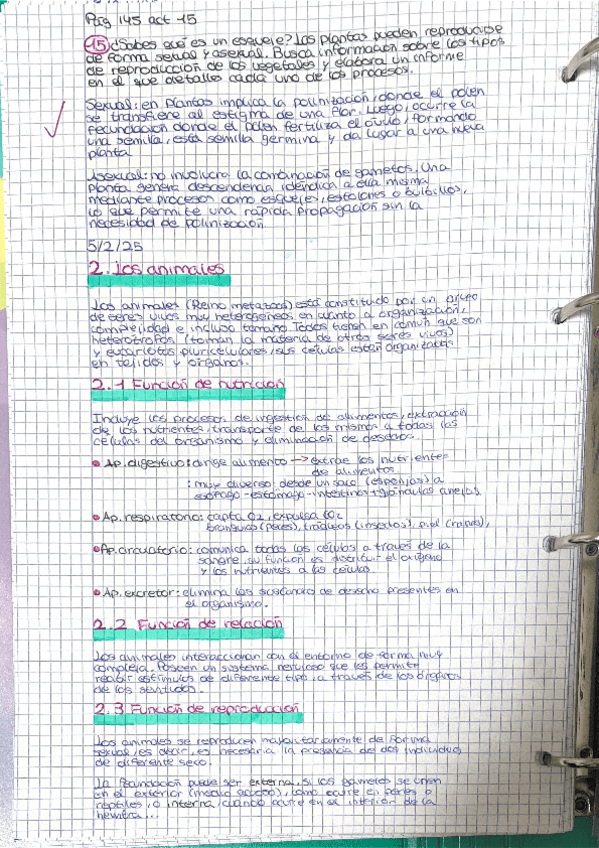 Pág 145 act 15
15 ¿Sabes qué es un esqueje? Las plantas pueden reproducirse
de forma sexual y asexual. Busca información sobre los tipos
de reproducción de los vegetales y elabora un informe
en el que detalles cada uno de los procesos.
Sexual: en plantas implica la polinización, donde el polen
se transfiere al estigma de una flor. Luego, ocurre la
fecundación donde el polen fertiliza el óvulo, formando
una semilla, esta semilla germina y da lugar a una nueva
planta
Asexual: no involucra la combinación de gametos. Una
planta genera descendencia idéndica a ella misma
mediante procesos como esquejes, estolones o bulbillos,
lo que permite una rápida propagación sin la
necesidad de polinización.
5/2/25
2. Los animales
Los animales (Reino metazoos) está constituido por un grupo
de seres vivos muy heterogéneos en cuanto a organización,
complejidad e incluso tamaño. Todos tienen en común que son
heterótrofos (toman la materia de otros seres vivos)
y eucariotas pluricelulares, sus células están organizadas
en tejidos y órganos.
2.1 Función de nutrición
Incluye los procesos de ingestión de alimentos, extracción
de los nutrientes, transporte de los mismos a todas las
células del organismo y eliminación de desechos.
• Ap. digestivo: dirige alimento → extrae los nutrientes
de alimentos
: muy diverso desde un saco (esponjas) a
esófago-estómago-intestino + glándulas anejas
• Ap. respiratorio: capta O2, expulsa CO2
branquias (peces), tráqueas (insectos), piel (),
• Ap. circulatorio: comunica todas las células a través de la
sangre su función es distribuir el oxígeno
y los nutrientes a las células
• Ap. excretor: elimina las sustancias de desecho presentes en
el organismo.
2.2 Función de relación
Los animales interaccionan con el entorno de forma muy
compleja. Poseen un sistema nervioso que les permite
recibir estímulos de diferente tipo a través de los órganos
de los sentidos.
2.3 Función de reproducción
Los animales se reproducen mayoritariamente de forma
sexual, es decir, es necesaria la presencia de dos individuos
de diferente sexo.
La fecundación puede ser externa, si los gametos se unen
en el exterior (medio acuoso), como ocurre en peces o
reptiles, o interna, cuando ocurre en el interior de la
hembra...